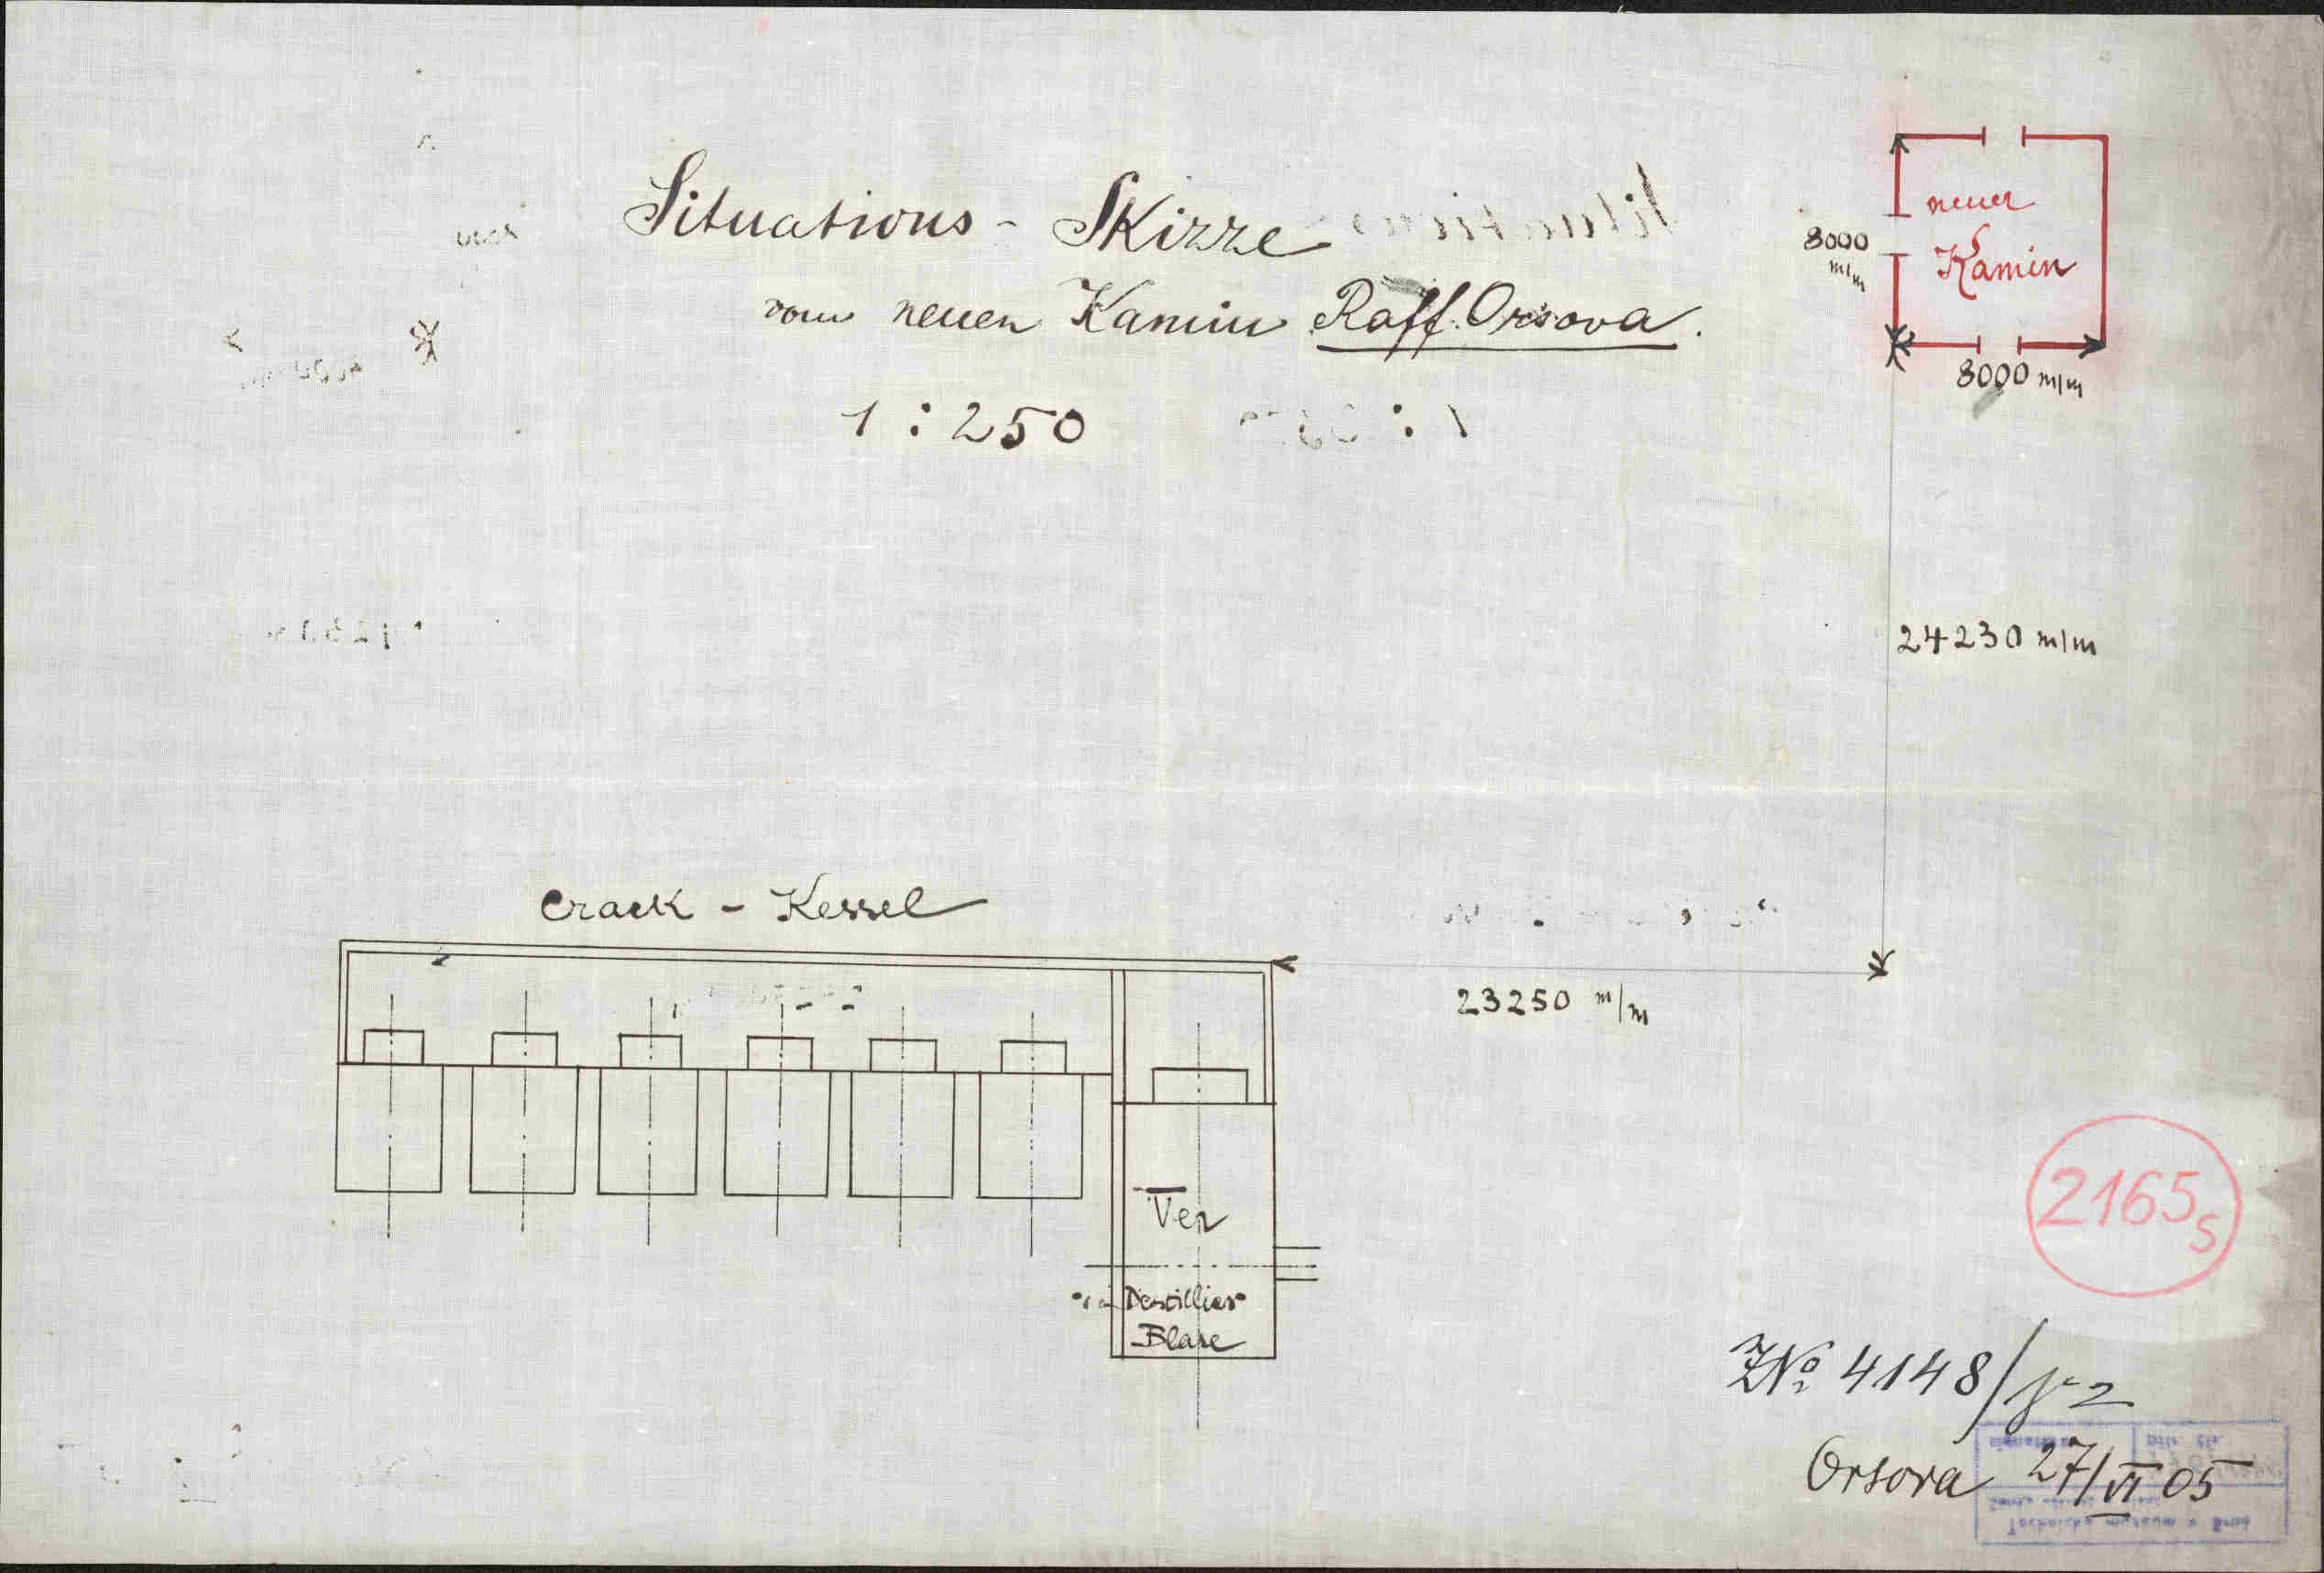 Situations - Skizze
vom neuen Kamin Raff. Orsova.
1 : 250
neuer
Kamin
8000
m/m
8000 m/m
24230 m/m
Crack - Kessel
23250 m/m
Ver
Destillier
Blase
2165s
ZNo 4148/
Orsova 27/VI 05
Technické muzeum v Brně